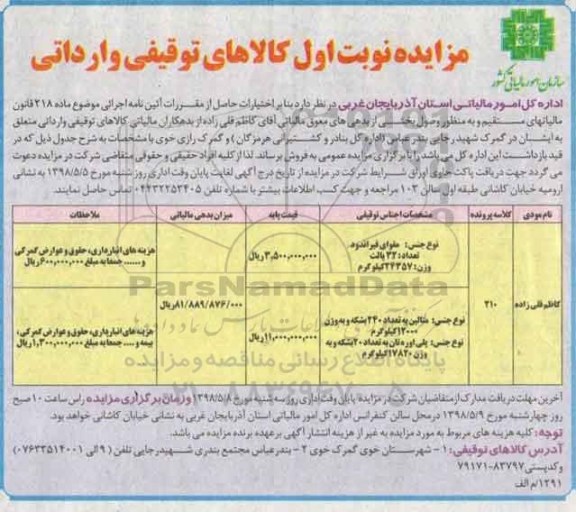 مزایده نوبت اول کالاهای توقیفی وارداتی
سازمان امور مالیاتی کشور
اداره کل امور مالیاتی استان آذربایجان غربی در نظر دارد بنا بر اختیارات حاصل از مقررات آئین نامه اجرائی موضوع ماده ۲۱۸ قانون
مالیاتهای مستقیم و به منظور وصول بخشی از بدهی های معوق مالیاتی آقای کاظم قلی زاده از بدهکاران مالیاتی کالاهای توقیفی وارداتی متعلق
به ایشان در گمرک شهید رجایی بندرعباس (اداره کل بنادر و کشتیرانی هرمزگان) و گمرک رازی خوی با مشخصات به شرح جدول ذیل که در
قید بازداشت این اداره کل می باشد را با برگزاری مزایده عمومی به فروش برساند. لذا از کلیه افراد حقیقی و حقوقی متقاضی شرکت در مزایده دعوت
می گردد جهت دریافت پاکت حاوی اوراق شرایط شرکت در مزایده از تاریخ درج آگهی لغایت پایان وقت اداری روز شنبه مورخ ۱۳۹۸/۵/۵ به نشانی
ارومیه خیابان کاشانی طبقه اول سالن ۱۰۳ مراجعه و جهت کسب اطلاعات بیشتر با شماره تلفن ۰۴۴۳۲۲۵۳۴۰۵ تماس حاصل نمایند.
نام مودی کلاسه پرونده مشخصات اجناس توقیفی قیمت پایه میزان بدهی مالیاتی ملاحظات
کاظم قلی زاده ۲۱۰
نوع جنس: مقوای قیر اندود
تعداد: ۳۲ پالت
وزن: ۲۴۳۵۷ کیلوگرم
۳,۵۰۰,۰۰۰,۰۰۰ ریال
هزینه های انبارداری، حقوق و عوارض گمرکی
و ...... جمعا به مبلغ ۶۰۰,۰۰۰,۰۰۰ ریال
۸۱/۸۸۹/۸۷۶/۰۰۰ ریال
نوع جنس: متالین به تعداد ۲۴۰ بشکه و به وزن
۱۲۰۰۰ کیلوگرم
نوع جنس: پلی اوره تان به تعداد ۲۰ بشکه و به
وزن ۱۷۸۲۰ کیلوگرم
۱۱,۰۰۰,۰۰۰,۰۰۰ ریال
هزینه های انبارداری، حقوق و عوارض گمرکی،
بیمه و ..... جمعا به مبلغ ۱,۳۰۰,۰۰۰,۰۰۰ ریال
ParsNamadData
پایگاه اطلاع رسانی مناقصه و مزایده
آخرین مهلت دریافت مدارک از متقاضیان شرکت در مزایده پایان وقت اداری روز سه شنبه مورخ ۱۳۹۸/۵/۸ و زمان برگزاری مزایده راس ساعت ۱۰ صبح
روز چهارشنبه مورخ ۱۳۹۸/۵/۹ در محل سالن کنفرانس اداره کل امور مالیاتی استان آذربایجان غربی به نشانی خیابان کاشانی خواهد بود.
توجه: کلیه هزینه های مربوط به مورد مزایده به غیر از هزینه انتشار آگهی بر عهده برنده مزایده می باشد.
آدرس کالاهای توقیفی: ۱ - شهرستان خوی گمرک خوی ۲ - بندرعباس مجتمع بندری شهید رجایی تلفن (۹ الی ۰۷۶۳۳۵۱۴۰۰۱)
و کدپستی ۸۳۷۹۷-۷۹۱۷۱
۱۲۹۱/م الف